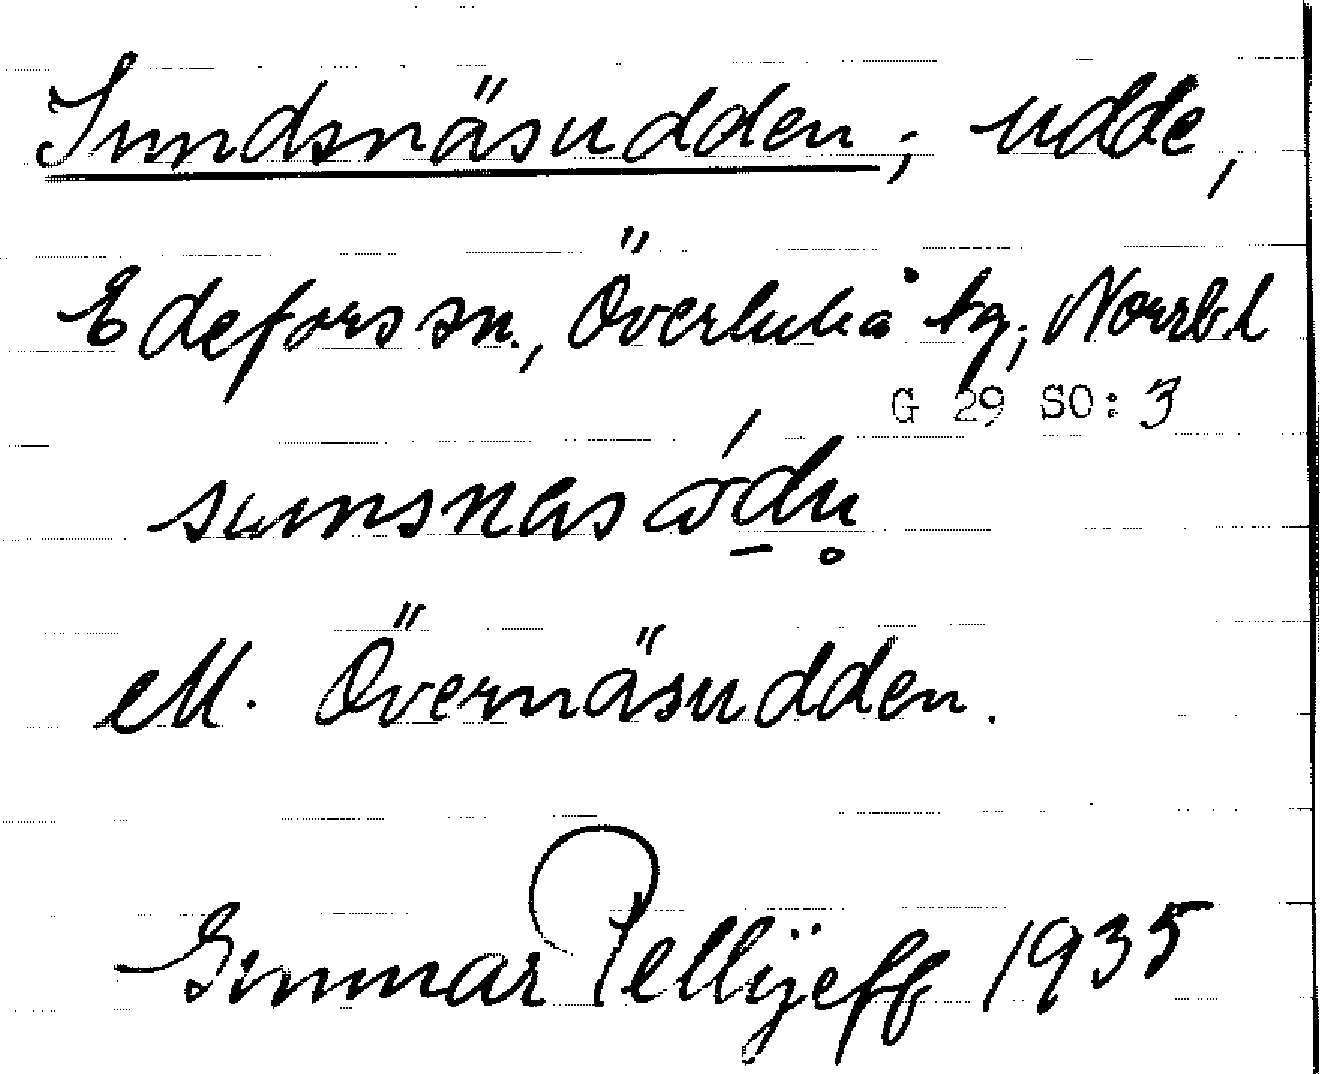 Sundsnäsudden; udde,
Edefors sn., Överluleå tg; Norrb.l
G 29 SO: 3
ell. Övernäsudden.
Gunnar Pellijeff 1935